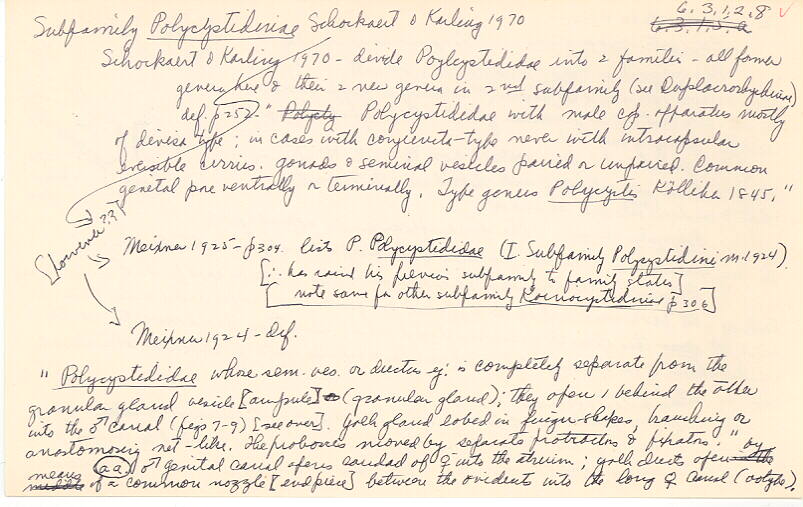 6.3.1.2.8
6.3.1.5.a
Subfamily Polycystidinae Schockaert & Karling 1970
Schockaert & Karling 1970 - divide Poylcystididae into 2 families - all former
genera here & their 2 new genera in 2nd subfamily (see Duplacrorhynchinae)
def. p 252 - " Polycty Polycystididae with male cop. apparatus mostly
of divisa type; in cases with conjuncta-type never with intracapsular
eversible cirrus. gonads & seminal vesicles paired or unpaired. Common
genital pore ventrally or terminally. Type genus Polycystis Kölliker 1845."
However??
Meixner 1925 - p 304. lists P. Polycystididae (I. Subfamily Polycystidini m. 1924).
[∴ has raised his previous subfamily to family status]
[note same for other subfamily Koinocystidinae p 306]
Meixner 1924 - def.
" Polycystididae whose sem. ves. or ductus ej. is completely separate from the
granular gland vesicle [ampule] (granular gland); they open 1 behind the other
into the ♂ canal (figs 7-9) [see over]. Yolk gland lobed in finger-shapes, branching or
anastomosing net-like. The proboscis moved by separate protractors & fixators." by
means (aa) ♂ genital canal opens caudad of ♀ into the atrium; yolk ducts open
middle of a common nozzle [end piece] between the oviducts into the long ♀ canal (ootype).